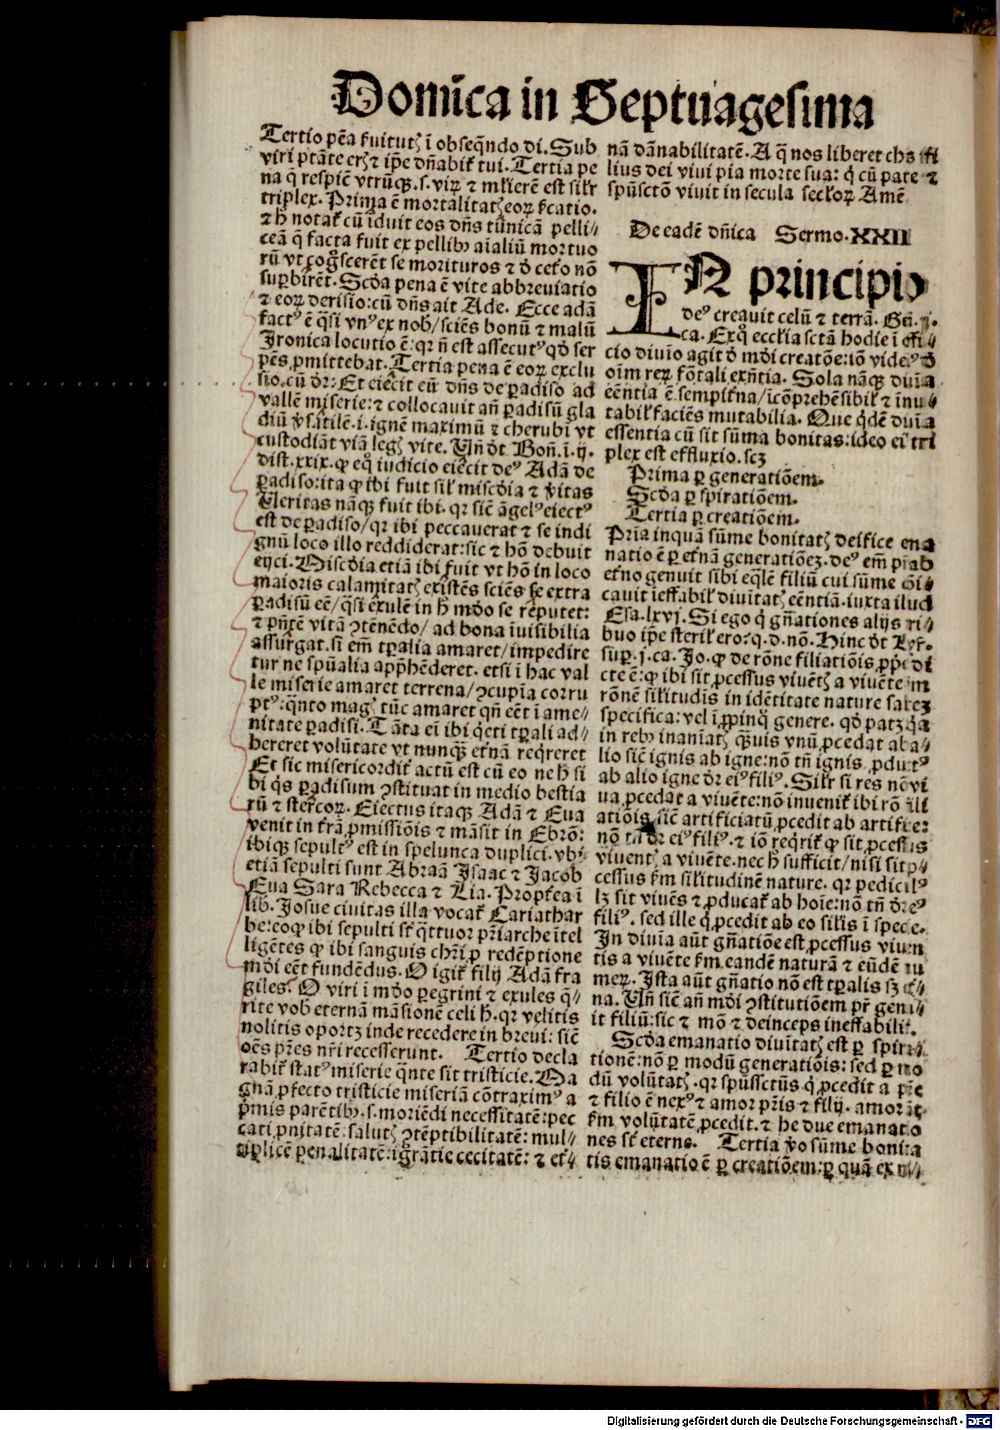 Domĩca in Septuagesima
Tertio pẽa ẜuitutꝭ ĩ obseq̃ndo di. Sub
viri ptãte erꝭ ⁊ ip̃e dñabit̃ tui. Tertia pe
na q̃ respic̃ vtrũqꝫ .s. virꝝ ⁊ mł̃ierẽ est silr̃
triplex. Prima ẽ mortalitatꝭ eoꝝ ẜcatio.
⁊ h̃ notat̃ cũ ĩduit eos dñs tũnicã pelli⸗
ceã q̃ facta fuit ex pellibꝰ aĩaliũ mortuo
rũ vt cog̃scerẽt se morituros ⁊ đ cet̃o nõ
suꝑbirẽt. Scđa pena ẽ vite abbreuiatio
⁊ eoꝝ derisio: cũ dñs ait Ade. Ecce adã
factꝰ ẽ q̃si vnꝰ ex nob̃/ sciẽs bonũ ⁊ malũ
Jronica locutio ẽ: qr̃ ñ est assecutꝰ qđ ser
pẽs ꝓmittebat. Tertia pena ẽ eoꝝ exclu
sio. cũ đr: Et eiecit eũ dñs de ꝑadiso ad
vallẽ miserie: ⁊ collocauit añ ꝑadisũ gla
diũ v̓satilẽ .i. ignẽ maximũ ⁊ cherubĩ vt
custodiãt viã legꝭ vite. Uñ đt Boñ. i. ij.
dist. xxix. ꝙ eq̃ iudicio eiecit deꝰ Adã de
ꝑadiso: ita ꝙ ibi fuit sil̃ miscđia ⁊ v̓itas
Ueritas nãqꝫ fuit ibi. qr̃ sic̃ ãgelꝰ eiectꝰ
est de ꝑadiso/ qr̃ ibi peccauerat ⁊ se indi
gnũ loco illo reddiderat: sic ⁊ hõ debuit
eijci. Miscđia etiã ibi fuit vt hõ in loco
maioris calamitatꝭ existẽs sciẽs se extra
ꝑadisũ eẽ/ q̃si exulẽ in h̃ mđo se reputet:
⁊ pñtẽ vitã ꝯtẽnẽdo/ ad bona ĩuisibilia
assurgat. si em̃ tꝑalia amaret/ impedire
tur ne spũalia app̃hẽderet. etsi ĩ hac val
le miserie amaret terrena/ ꝯcupĩa corru
ptꝰ: q̃nto magꝭ tũc amaret qñ eẽt ĩ ame⸗
nitate ꝑadisi. Tãta eĩ ibi q̃eti tꝑali ad⸗
hereret volũtate vt nunqꝫ et̃nã reqreret
Et sic misericordit̃ actũ est cũ eo ne h̃ si
bi q̃s ꝑadisum ꝯstituat in medio bestia
rũ ⁊ ster̃coꝝ. Eiectus itaqꝫ Adã ⁊ Eua
venit in t̃rã ꝓmissiõis ⁊ mãsit in Ebrõ:
ibiqꝫ sepultꝰ est in spelunca duplici. vbi
etiã sepulti sunt Abraã Jsaac ⁊ Jacob
Eua Sara Rebecca ⁊ Lia. Propt̃ea ĩ
lib. Josue ciuitas illa vocat̃ Cariathar
be: eoqꝫ ibi sepulti st̃ q̃ttuor pr̃iarche ĩtel
ligẽtes ꝙ ibi sanguis chr̃i ꝓ redẽptione
mđi eẽt fundẽdus. O igit̃ filij Adã fra
giles. O viri ĩ mđo ꝑegrini ⁊ exules q̃⸗
rite vob eternã mãsionẽ celi h̃. qr̃ velitis
nolitis oportꝫ inde recedere in breui: sic̃
oẽs pr̃es nr̃i recesserunt. Tertio decla
rabit̃ statꝰ miserie q̃nte sit tristicie. Ma
gnã ꝓfecto tristicie miseriã cõtraximꝰ a
p̃mis parẽtibꝰ .s. moriẽdi necessitatẽ: pec
cati ꝓnitatẽ: salutꝭ ꝯtẽptibilitatẽ: mul⸗
tiplicẽ ꝑenalitatẽ: ig̃rãtie cecitatẽ: ⁊ et̃⸗
nã dãnabilitatẽ. A q̃ nos liberet ch̃s fi
lius dei viui pia morte sua: q̓ cũ patre ⁊
spũsctõ viuit in secula seclõꝝ Amẽ
De eadẽ dñica Sermo. XXII
IN principio
deꝰ creauit celũ ⁊ terrã. Gñ. j.
ca. Exq̃ eccłia sctã hodie ĩ offi⸗
cio diuĩo agit đ mđi creatõe: iõ videꝰ đ
oĩm reꝝ fõtali exñtia. Sola nãqꝫ duĩa
eẽntia ẽ sempit̃na/ ĩcõprehẽsibil̃ ⁊ ĩnu⸗
tabil̃ faciẽs mutabilia. Que q̓dẽ duĩa
essentia cũ sit sũma bonitas: ideo ei tri
plex est effluxio. scꝫ
Prima ꝑ generatiõem.
Scđa ꝑ spiratiõem.
Tertia ꝑ creatiõem.
Pr̃ia inquã sũme bonitatꝭ deifice ema
natio ẽ ꝑ et̃nã generatiõeꝫ. deꝰ em̃ pr̃ ab
et̃no genuit sibi eq̃lẽ filiũ cui sũme cõi⸗
cauit ieffabil̃ diuĩtatꝭ eẽntiã. iuxta ilud
Esa. lxvj. Si ego q̓ gñationes alijs tri⸗
buo ip̃e steril̃ ero: q. d. nõ. Hinc đt Lyr.
sup̃. j. ca. Jo. ꝙ de rõne filiatiõis ꝓp̃e di
cte ẽ: ꝙ ibi sit ꝓcessus viuẽtꝭ a viuẽte in
rõnẽ silĩtudis in idẽtitate nature saltẽ
specifica: vel ĩ ꝓpinq̃ genere. qđ patꝫ q̓a
in rebꝰ inaniatꝭ qꝫuis vnũ ꝓcedat ab a⸗
lio sic̃ ignis ab igne: nõ tñ ignis ꝓductꝰ
ab alio igne đr eiꝰ filiꝰ. Silr̃ si res nõ vi
ua ꝓcedat a viuẽte: nõ inuenit̃ ibi rõ fili
atiõis. sic̃ artificiatũ ꝓcedit ab artifice:
nõ tñ đr eiꝰ filiꝰ. ⁊ iõ req̓rit̃ ꝙ sit ꝓcessus
viuentꝭ a viuẽte. nec h̃ sufficit/ nisi sit ꝓ⸗
cessus ẜm silĩtudinẽ nature. qr̃ pediculꝰ
lꝫ sit viuẽs ⁊ ꝓducat̃ ab hoĩe: nõ tñ đr eꝰ
filiꝰ. sed ille q̓ ꝓcedit ab eo silĩs ĩ specie.
Jn diuĩa aũt gñatiõe est ꝓcessus viuen
tis a viuẽte ẜm eandẽ naturã ⁊ eũdẽ nu
meꝝ. Jsta aũt gñatio nõ est tꝑalis sꝫ et̃⸗
na. Uñ sic̃ añ mđi ꝯstitutiõem pr̃ genu⸗
it filiũ: sic ⁊ mõ ⁊ deinceps ineffabilit̃.
Scđa emanatio diuĩtatꝭ est ꝑ spira⸗
tionẽ: nõ ꝑ modũ generatiõis: sed ꝑ mo
dũ volũtatꝭ. qr̃ spũssctũs q̓ ꝓcedit a pr̃e
⁊ filio ẽ nexꝰ ⁊ amor pr̃is ⁊ filij. amor aũt
ẜm volũtatẽ ꝓcedit. ⁊ he due emanatio
nes st̃ eterne. Tertia v̓o sũme bonita
tis emanatio ẽ ꝑ creatiõem: ꝑ quã ex ni⸗
Digitalisierung gefördert durch die Deutsche Forschungsgemeinschaft - DFG